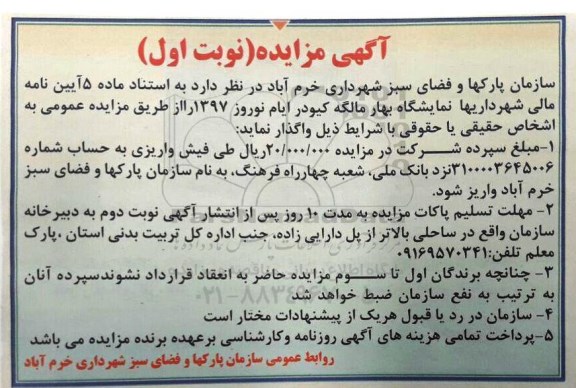 آگهی مزایده(نوبت اول)
سازمان پارکها و فضای سبز شهرداری خرم آباد در نظر دارد به استناد ماده ۵آیین نامه
مالی شهرداریها نمایشگاه بهار مالگه کیودر ایام نوروز ۱۳۹۷رااز طریق مزایده عمومی به
اشخاص حقیقی یا حقوقی با شرایط ذیل واگذار نماید:
۱-مبلغ سپرده شرکت در مزایده ۲۰/۰۰۰/۰۰۰ریال طی فیش واریزی به حساب شماره
۳۱۰۰۰۰۳۶۴۵۰۰۶نزد بانک ملی، شعبه چهارراه فرهنگ، به نام سازمان پارکها و فضای سبز
خرم آباد واریز شود.
۲- مهلت تسلیم پاکات مزایده به مدت ۱۰ روز پس از انتشار آگهی نوبت دوم به دبیرخانه
سازمان واقع در ساحلی بالاتر از پل دارایی زاده، جنب اداره کل تربیت بدنی استان ،پارک
معلم تلفن:۰۹۱۶۹۵۷۰۳۴۱
۳- چنانچه برندگان اول تا سوم مزایده حاضر به انعقاد قرارداد نشوندسپرده آنان
به ترتیب به نفع سازمان ضبط خواهد شد
۴- سازمان در رد یا قبول هریک از پیشنهادات مختار است
۵-پرداخت تمامی هزینه های آگهی روزنامه وکارشناسی برعهده برنده مزایده می باشد
روابط عمومی سازمان پارکها و فضای سبز شهرداری خرم آباد